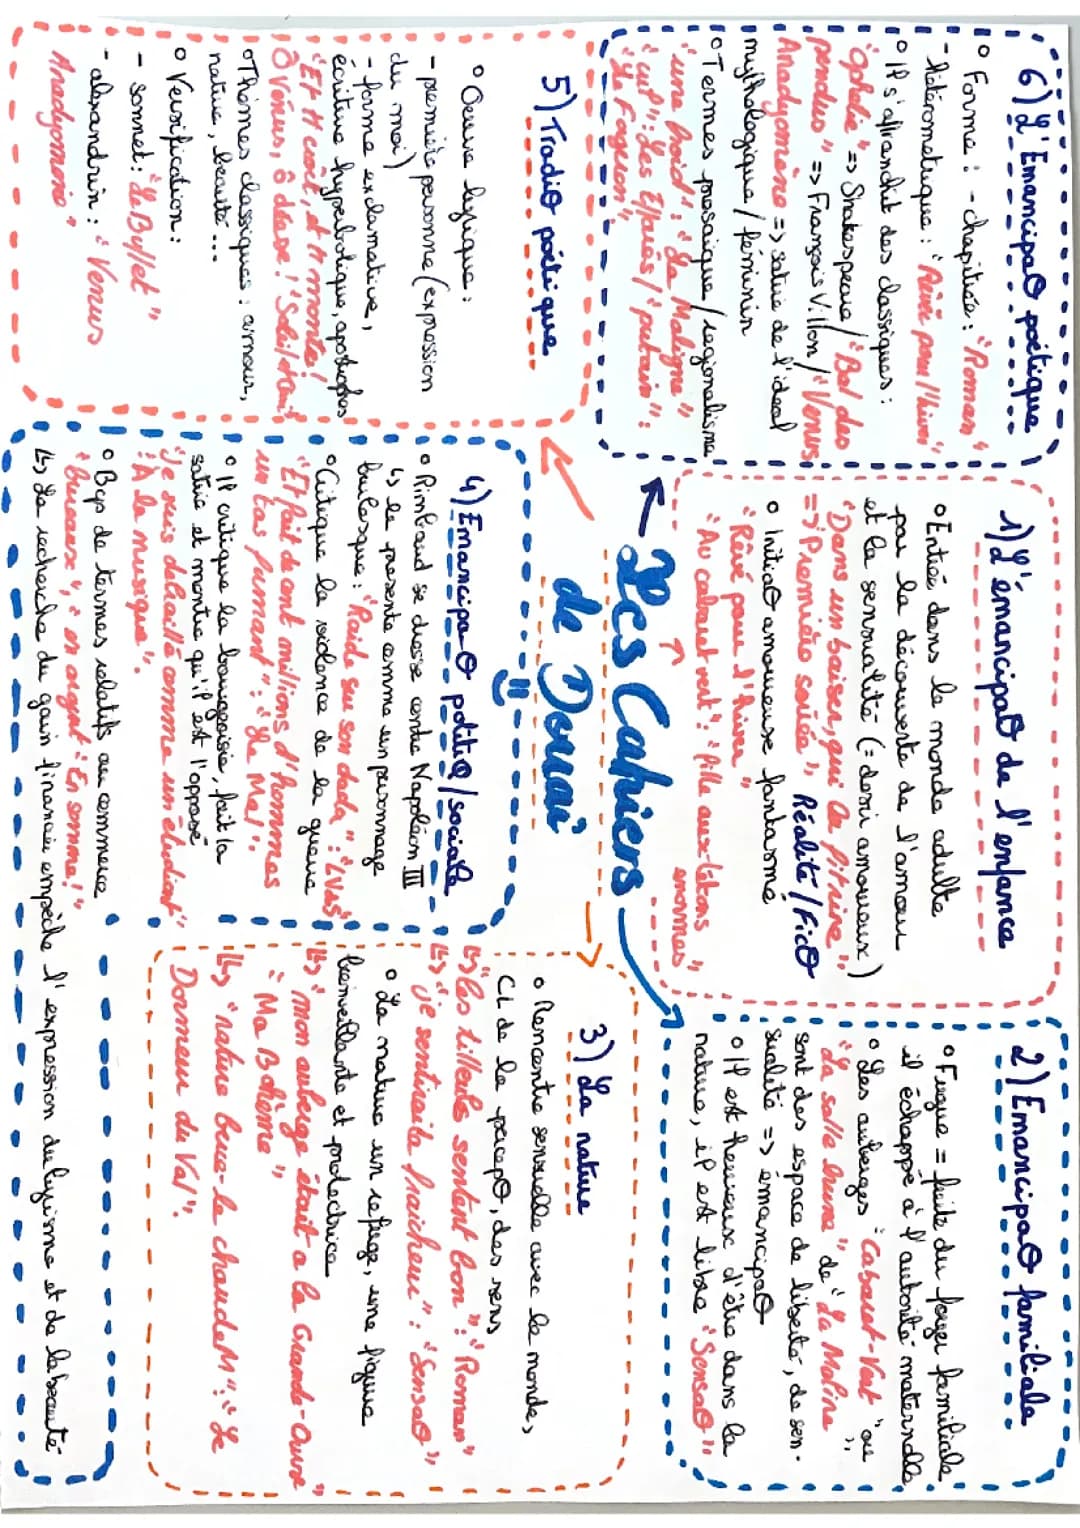 Les Cahiers
de Douai
1) L'émancipat° de l'enfance
• Entrée dans le monde adulte
par la découverte de l'amour
et la sensualité (= desir amoureux)
"Dans un baiser, qui
"Première soirée", Réalité/Fict°
• Initiat° amoureuse fantasmé
"Rêvé pour l'hiver"
"Au cabaret vert": "fille aux tétons
enormes"
2) Emancipat° familiale
• Fugue = fuite du foyer familiale,
il échappe à l'autorité maternelle
• Les auberges "Cabaret-Vert" ou
"La salle brune" de "La Maline",
sont des espace de liberté, de sen-
sualité => émancipat°
• Il est heureux d'être dans la
nature, il est libre "Sensat°"
3) La nature
• Rencontre sensuelle avec le monde,
CL de la percept°, des sens
↳ "les tilleuls sentent bon": "Roman"
↳ "j'e sentirai la fraicheur": "Sensat°"
• La nature un refuge, une figure
bienveillante et protectrice
↳ "mon auberge était a la Grande-Ourse"
"Ma Bohème"
↳ "nature berce-le chaudemt": "Le
Dormeur du Val".
4) Emancipat° politiq/sociale
• Rimbaud se dresse contre Napoléon III
↳ le presente comme un personnage
burlesque: "Raide sur son dada": "LVdS"
• Critique la violence de la guerre
"Et fait de cent millions d'hommes
un tas fumant": "Le Mal".
• Il critique la bourgeoisie, fait la
satire et montre qu'il est l'opposé
"Je suis débraillé comme un étudiant"
: "A la musique".
• Bcp de termes relatifs au commerce
"bureaux", "en argent" "En somme!"
↳ La recherche du gain financier empêche l'expression du lyrisme et de la beauté
5) Tradit° poétique
• Oeuvre lyrique:
- première personne (expression
du moi)
- forme exclamative,
écriture hyperbolique, apostrophes
"Et tt croit, et tt monte!
Ô Vénus, ô déese!"
• Thèmes classiques: amour,
nature, beauté...
• Versification:
- sonnet: "Le Buffet"
- alexandrin: "Venus
Anadyomène"
6) L'Emancipat° poétique
• Forme: - chapitrée: "Roman"
- hétérometrique: "Rêvé pour l'hiver"
• Il s'affranchit des classiques:
"Ophélie" => Shakespeare/"Bal des
pendus" => François Villon/"Venus
Anadyomène => satire de l'ideal
mythologique/féminin
• Termes prosaique/regionalisme
"une froid": "La Maligne"
"cul": "Les Effarés/"putain":
"Le Forgeron".